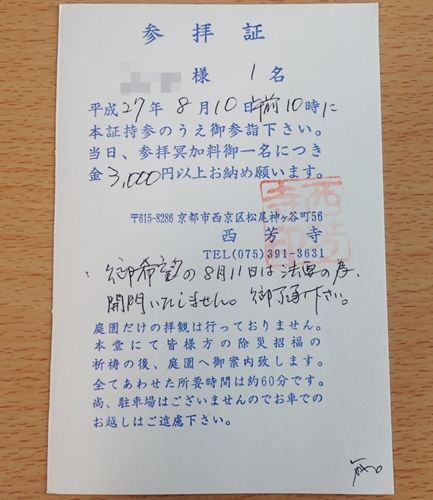 参拝証
様 1名
平成27年8月10日午前10時に
本証持参のうえ御参詣下さい。
当日、参拝冥加料御一名につき
金3,000円以上お納め願います。
西芳寺印
〒615-8286 京都市西京区松尾神ヶ谷町56
西芳寺
TEL(075)391-3631
御希望の8月11日は法要の為、
開門いたしません。御了承下さい。
庭園だけの拝観は行っておりません。
本堂にて皆様方の除災招福の
祈祷の後、庭園へ御案内致します。
全てあわせた所要時間は約60分です。
尚、駐車場はございませんのでお車での
お越しはご遠慮下さい。